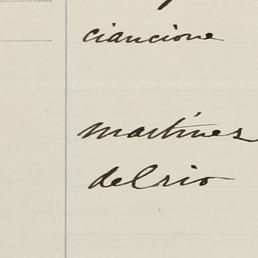 ciancione
martines
delrio